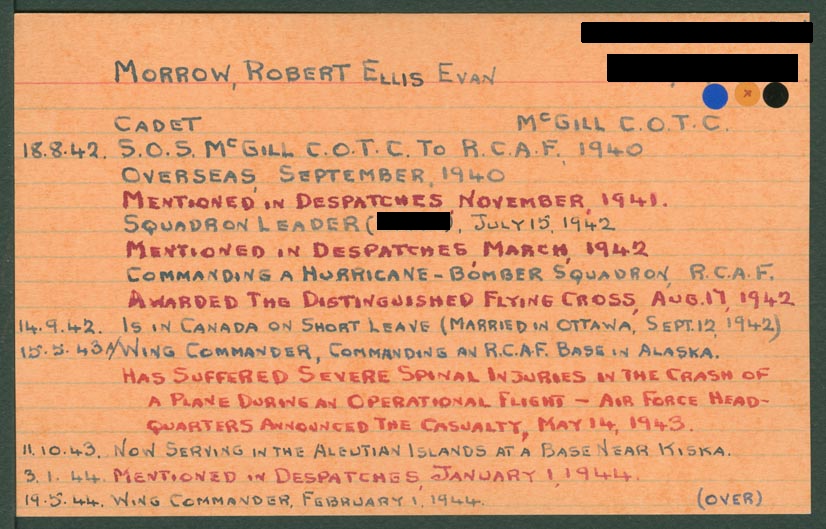 MORROW, ROBERT ELLIS EVAN
CADET McGILL C.O.T.C.
18.8.42. S.O.S. McGILL C.O.T.C. TO R.C.A.F., 1940
OVERSEAS, SEPTEMBER, 1940
MENTIONED IN DESPATCHES, NOVEMBER, 1941.
SQUADRON LEADER ( ), JULY 15, 1942
MENTIONED IN DESPATCHES, MARCH, 1942
COMMANDING A HURRICANE-BOMBER SQUADRON, R.C.A.F.
AWARDED THE DISTINGUISHED FLYING CROSS, AUG. 17, 1942
14.9.42. IS IN CANADA ON SHORT LEAVE (MARRIED IN OTTAWA, SEPT. 12, 1942)
15.5.43 A/WING COMMANDER, COMMANDING AN R.C.A.F. BASE IN ALASKA.
HAS SUFFERED SEVERE SPINAL INJURIES IN THE CRASH OF
A PLANE DURING AN OPERATIONAL FLIGHT - AIR FORCE HEAD-
QUARTERS ANNOUNCED THE CASUALTY, MAY 14, 1943.
11.10.43. NOW SERVING IN THE ALEUTIAN ISLANDS AT A BASE NEAR KISKA.
3.1.44. MENTIONED IN DESPATCHES, JANUARY 1, 1944.
19.5.44. WING COMMANDER, FEBRUARY 1, 1944. (OVER)